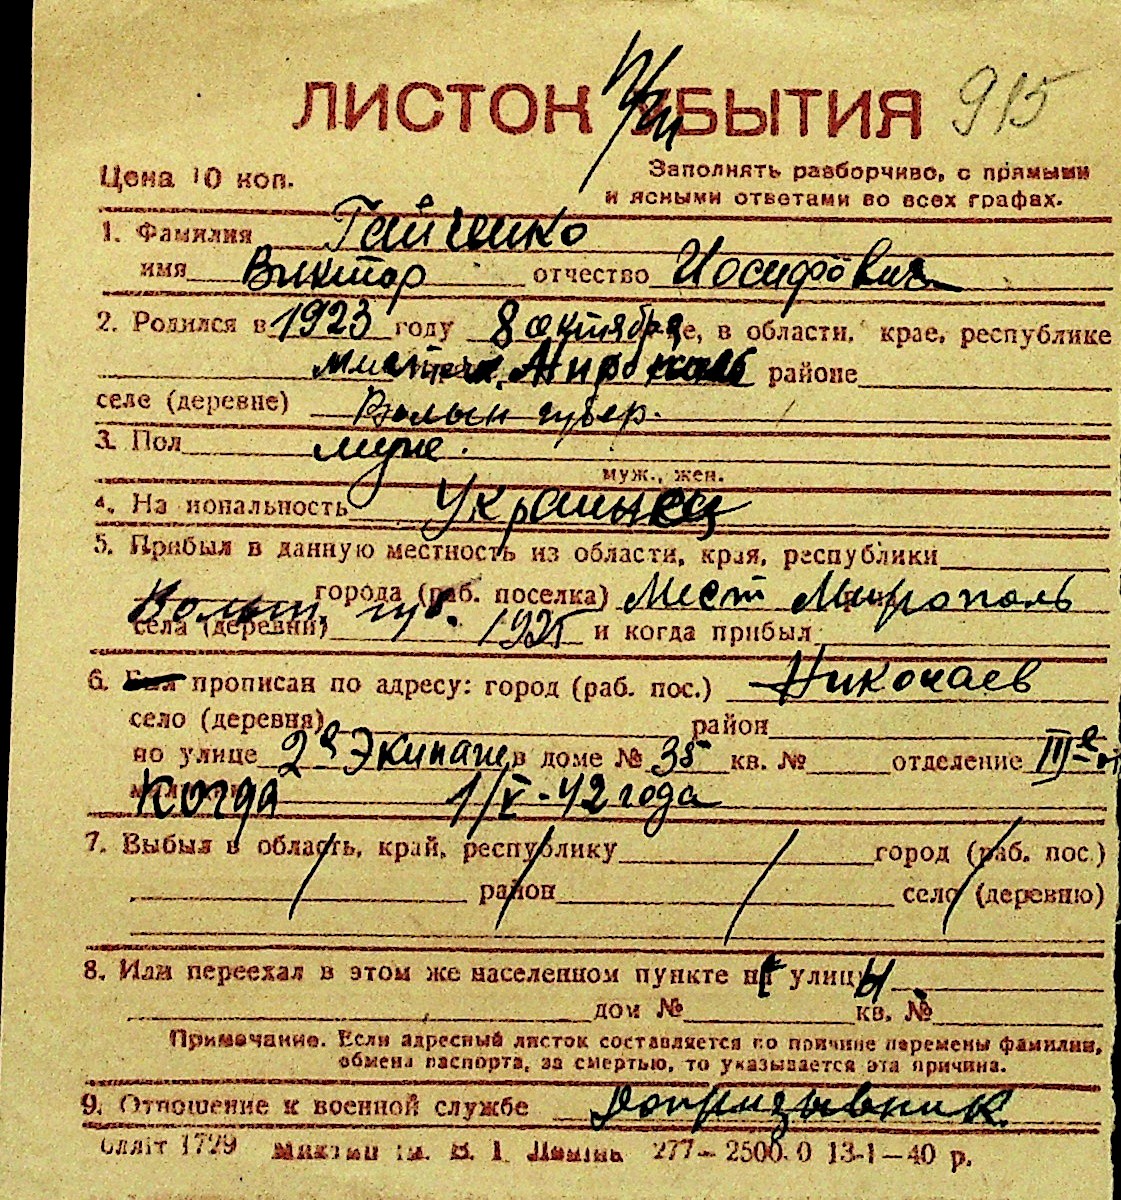 ЛИСТОК УБЫТИЯ 915
Цена 10 коп.
Заполнять разборчиво, с прямыми
и ясными ответами во всех графах.
1. Фамилия Гайченко
имя Виктор отчество Иосифович
2. Родился в 1923 году 8 октября е, в области, крае, республике
районе
селе (деревне) Волын губер.
3. Пол муж.
муж., жен.
4. На иональность Украинец
5. Прибыл в данную местность из области, края, республики
города (раб. поселка) Мест Мирополь
Волын. губ.
села (деревни) 1925 и когда прибыл
6. прописан по адресу: город (раб. пос.) Николаев
село (деревня) район
по улице 2я Экипаж в доме № 35 кв. № отделение III
Когда 1/V-42 года
7. Выбыл в область, край, республику город (раб. пос.)
район село (деревню)
8. Или переехал в этом же населенном пункте улицы
дом № кв. №
Примечание. Если адресный листок составляется по причине перемены фамилии,
обмена паспорта, за смертью, то указывается эта причина.
9. Отношение к военной службе допризывник.
1729 277—2500.0 13-1—40 р.